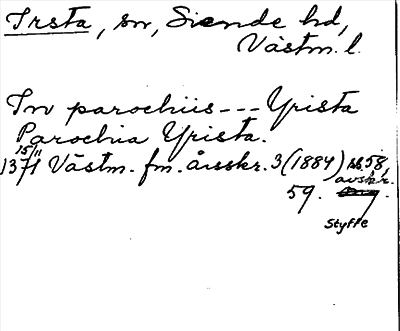 Irsta, sn, Siende hd,
Västm. l.
In parochiis --- Yrista
Parochia Yrista.
15/11
1371 Västm. fm. årsskr. 3 (1884) s. 58,
59. avskr.
Styffe